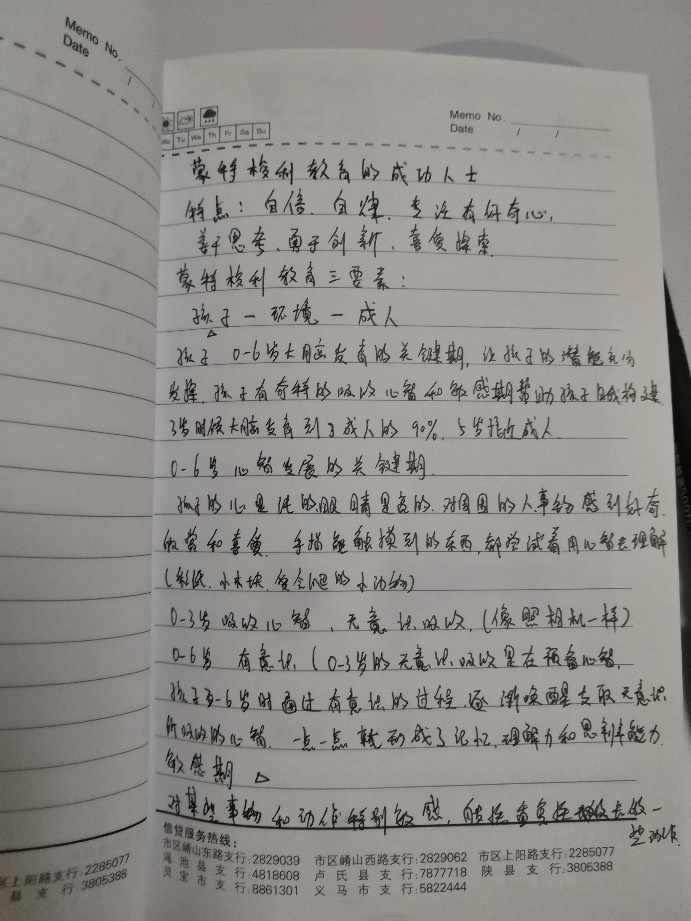 Memo No.
Date / /
Memo No.
Date / /
Mo Tu We Th Fr Sa Su
蒙特梭利教育的成功人士
特点：自信、自律、专注有好奇心，
善于思考、勇于创新、喜爱探索
蒙特梭利教育三要素：
孩子－环境－成人
孩子 0-6岁大脑发育的关键期，让孩子的潜能充分
发挥，孩子有奇特的吸收心智和敏感期帮助孩子自我构建
3岁时候大脑发育到了成人的90%，5岁接近成人
0-6岁心智发展的关键期
孩子的心是活的眼睛是亮的，对周围的人事物感到好奇、
欣赏和喜爱 手指能触摸到的东西，都尝试着用心智去理解
(彩泥、小木块、会爬的小动物)
0-3岁吸收心智，无意识吸收，(像照相机一样)
0-6岁 有意识，(0-3岁的无意识吸收是在预备心智，
孩子3-6岁时通过有意识的过程，逐渐唤醒支取无意识
所吸收的心智，一点一点就形成了记忆，理解力和思维能力
敏感期
对某些事物和动作特别敏感，
一些动作
信贷服务热线：
市区崤山东路支行：2829039 市区崤山西路支行：2829062 市区上阳路支行：2285077
渑池县支行：4818608 卢氏县支行：7877718 陕县支行：3805388
灵宝市支行：8861301 义马市支行：5822444
区上阳路支行：2285077
县支行：3805388